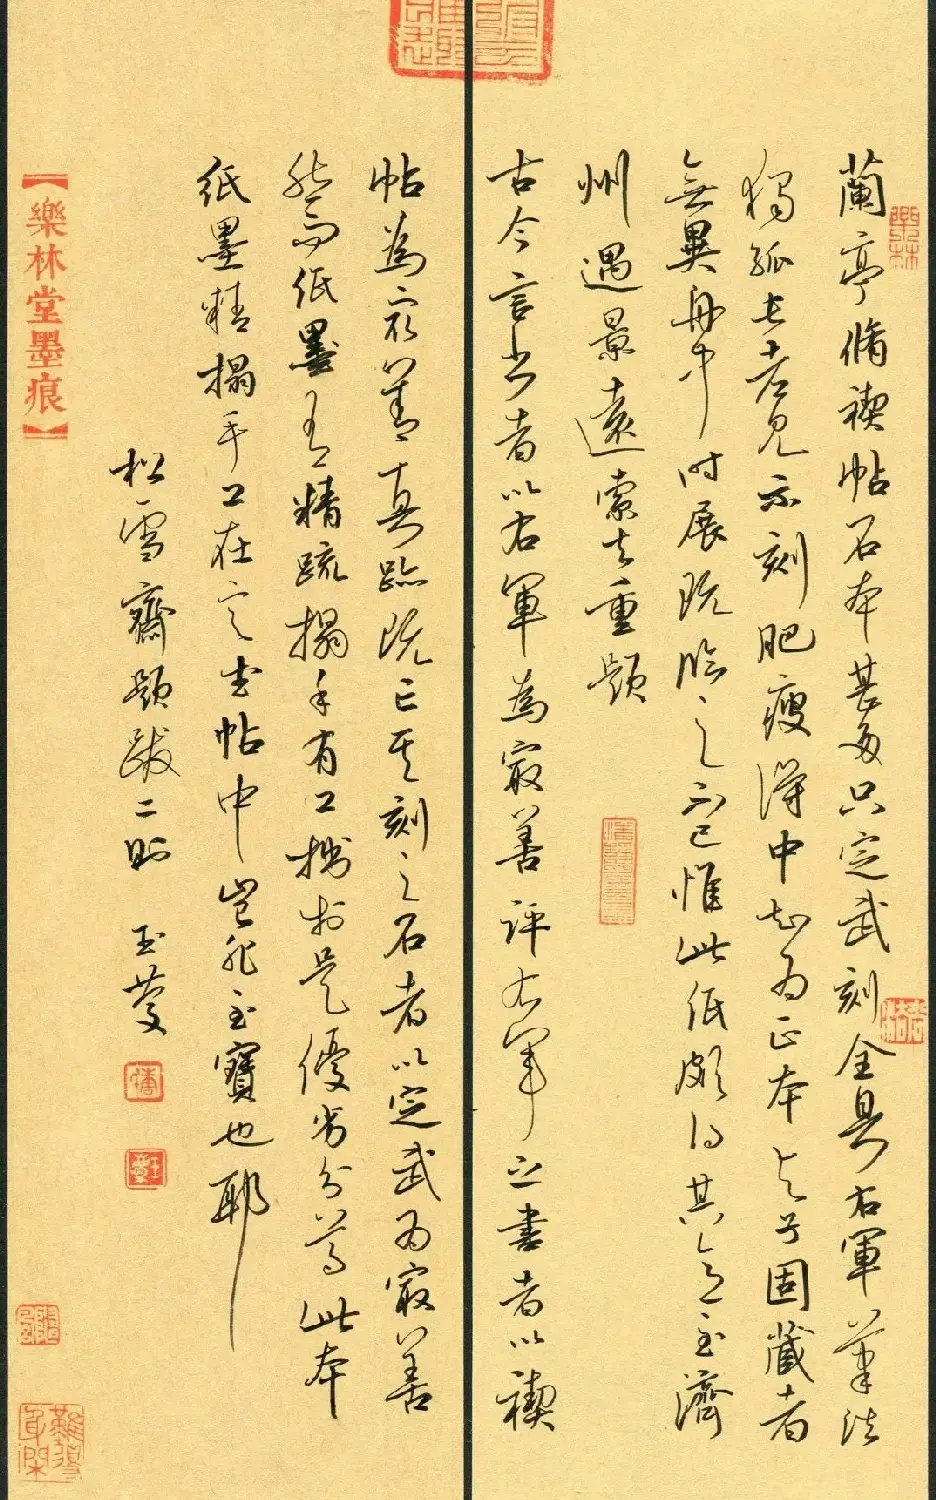 蘭亭脩禊帖石本甚多只定武刻全具右軍筆法
獨孤長老見示刻肥瘦得中知為正本與子固藏者
無異舟中時展玩臨之不已惟此紙頗得其意至濟
州遇景遠索去重題
古今言書者以右軍為㝡善評右軍之書者以禊
帖為㝡善真跡既亡其刻之石者以定武為㝡善
然而紙墨有精疏搨手有工拙於是優劣分焉此本
紙墨精搨手工在定武帖中豈非至寶也耶
松雪齋題跋二則 玉
【樂林堂墨痕】